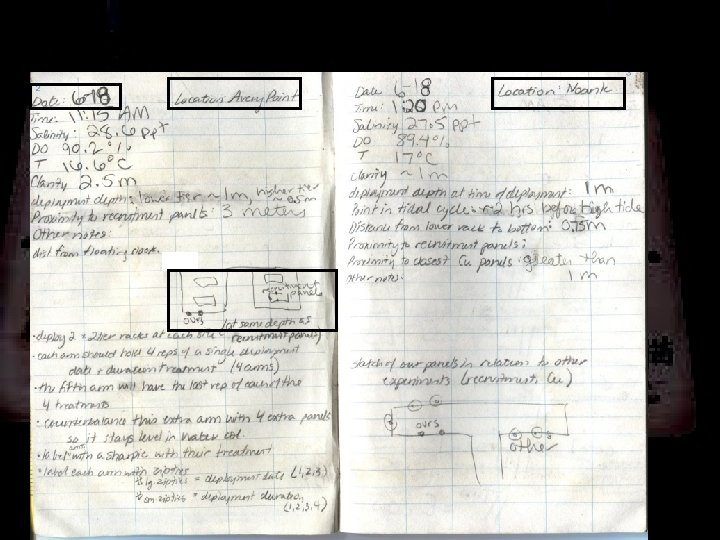 2
Date: 6-18
Location Avery Point
Time: 11:15 AM
Salinity: 28.6 ppt
DO 90.2%
T 16.6°C
Clarity 2.5m
deployment depth: lower tier ~1m, higher tier ~0.5m
Proximity to recruitment panels: 3 meters
Other notes:
dist from floating dock.
recruitment panel
ours
(at same depth as recruitment panels)
•deploy 2 x 2tier racks at each site
•each arm should hold 4 reps of a single deployment
date + duration treatment (4 arms)
•the fifth arm will have the last rep of each of the
4 treatments
•counterbalance this extra arm with 4 extra panels
so it stays level in water col.
•label with a sharpie with their treatment
•label each arm with zipties
lg. zipties = deployment date (1,2,3)
sm. zipties = deployment duration
(1,2,3,4)
3
Date 6-18
Location: Noank
Time: 1:20 pm
Salinity 27.5 ppt
DO 89.4%
T 17°C
Clarity ~1m
deployment depth at time of deployment: 1m
Point in tidal cycle: ~2 hrs before high tide
Distance from lower rack to bottom: 0.75m
Proximity to recruitment panels:
Proximity to closest Cu panels: greater than
1 m
Other notes:
sketch of our panels in relation to other
experiments (recruitment, Cu)
ours
other